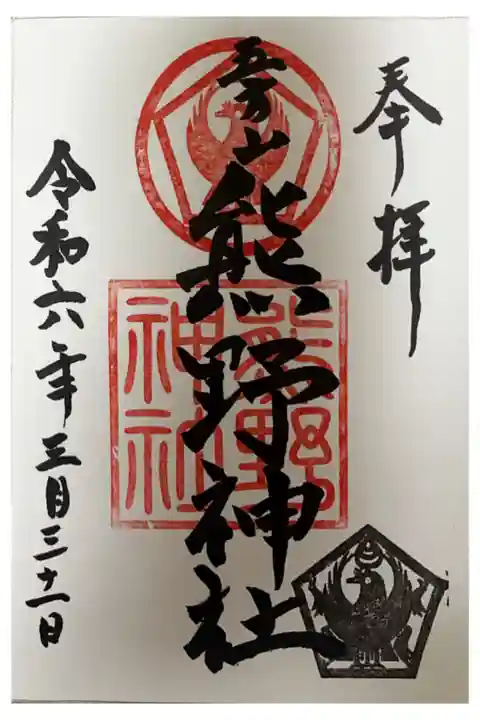 奉拝
熊野神社
熊野
神社
令和六年三月三十一日